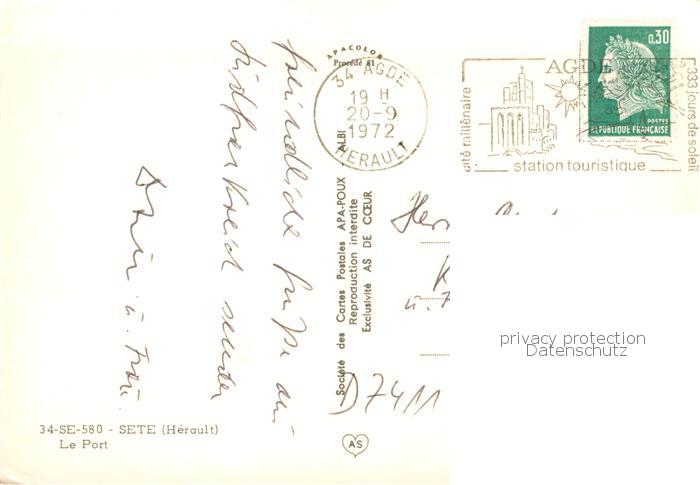 APACOLOR
Procédé 81
34 AGDE
19 H
20-9
1972
HERAULT
AGDE
cité millénaire
333 jours de soleil
station touristique
0,30
POSTES
REPUBLIQUE FRANÇAISE
freundliche Grüße aus
Südfrankreich senden
u. Frau.
Société des Cartes Postales APA-POUX - ALBI
Reproduction interdite
Exclusivité AS DE CŒUR
D 7411
privacy protection
Datenschutz
34-SE-580 - SETE (Hérault)
Le Port
AS